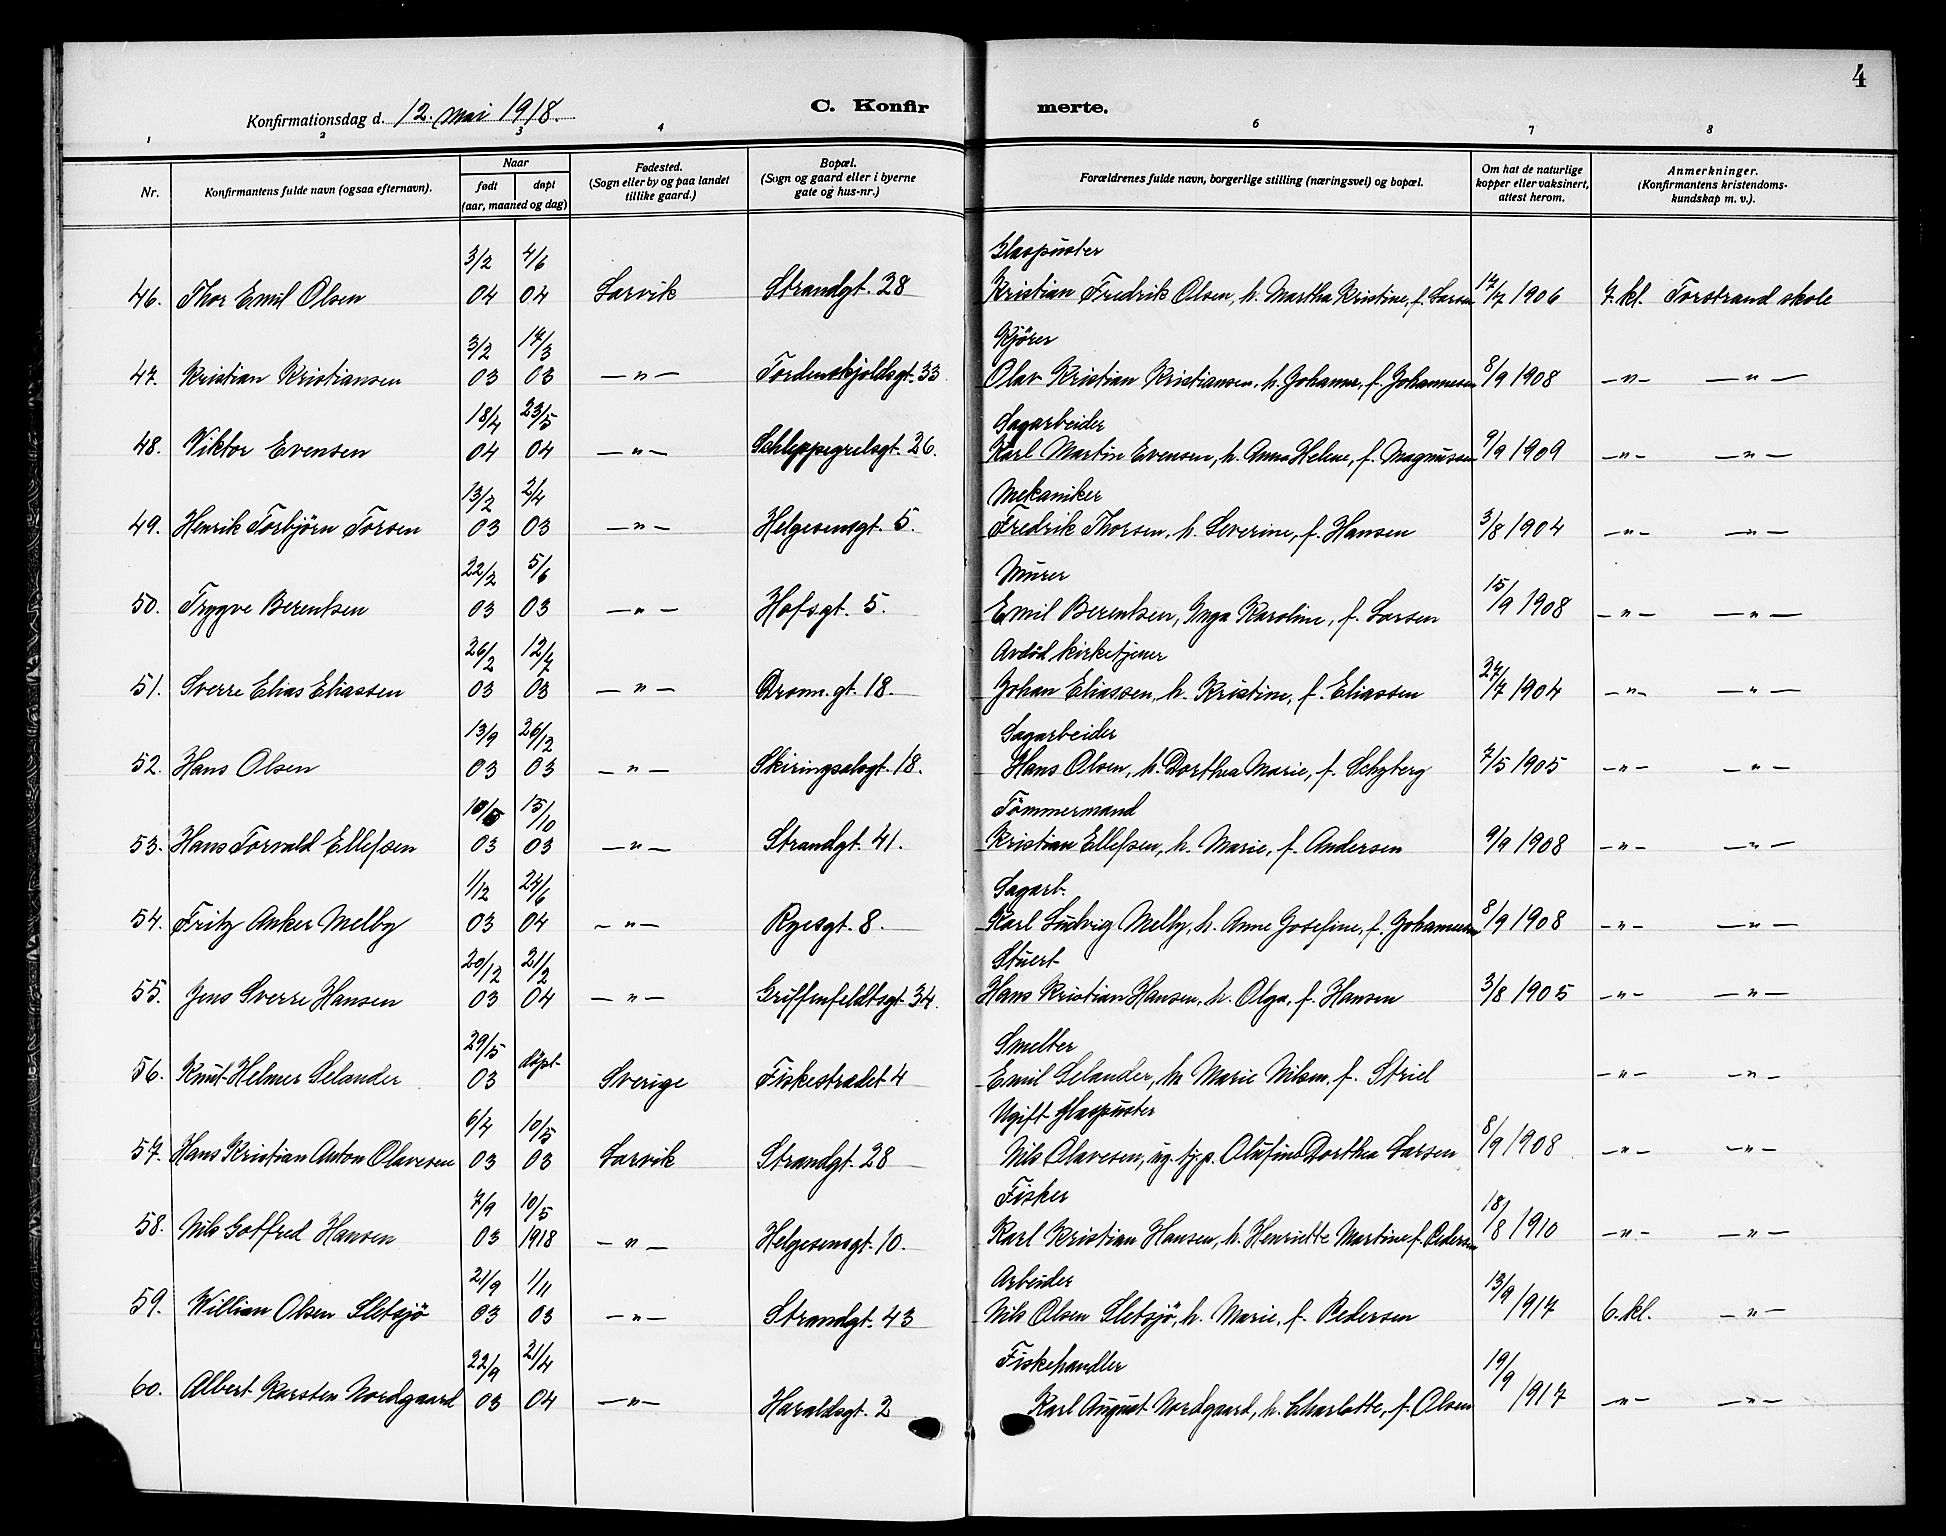 4
Konfirmationsdag d. 12. Mai 1918.
C. Konfirmerte.
1 2 3 4 6 7 8
Nr.
Konfirmantens fulde navn (ogsaa efternavn).
Naar
født døpt
(aar, maaned og dag)
Fødested.
(Sogn eller by og paa landet
tillike gaard.)
Bopæl.
(Sogn og gaard eller i byerne
gate og hus-nr.)
Forældrenes fulde navn, borgerlige stilling (næringsvei) og bopæl.
Om hat de naturlige
kopper eller vaksinert,
attest herom.
Anmerkninger.
(Konfirmantens kristendoms-
kundskap m. v.).
3/2 4/6 Glaspuster
46. Thor Emil Olsen 04 04 Larvik Strandgt. 28 Kristian Fredrik Olsen, h. Martha Kristine, f. Larsen 17/7 1906 7. kl. Torstrand skole
3/2 14/3 Kjörer
47. Kristian Kristiansen 03 03 —"— Tordenskjoldsgt. 33 Olav Kristian Kristiansen, h. Johanne, f. Johannesen 8/9 1908 —"— —"—
18/4 23/5 Sagarbeider
48. Viktor Evensen 04 04 —"— Schleppegrelsgt. 26. Karl Martin Evensen, h. Anna Helene, f. Magnussen 9/9 1909 —"— —"—
13/2 2/4 Mekaniker
49. Henrik Torbjörn Torsen 03 03 —"— Helgesensgt. 5. Fredrik Thorsen, h. Severine, f. Hansen 3/8 1904 —"— —"—
22/2 5/6 Murer
50. Trygve Berentsen 03 03 —"— Hofsgt. 5. Emil Berentsen, Inga Karoline, f. Larsen 15/9 1908 —"— —"—
26/2 12/7 Avdöd kirketjener
51. Sverre Elias Eliassen 03 03 —"— Dronn. gt. 18. Johan Eliassen, h. Kristine, f. Eliassen 27/7 1904 —"— —"—
13/9 26/12 Sagarbeider
52. Hans Olsen 03 03 —"— Skiringsalsgt. 18. Hans Olsen, h. Dorthea Marie, f. Schyberg 7/5 1905 —"— —"—
15/10 Tömmermand
53. Hans Torvald Ellefsen 03 03 —"— Strandgt. 41. Kristian Ellefsen, h. Marie, f. Andersen 9/9 1908 —"— —"—
1/12 24/6 Sagarb.
54. Fritz Anker Melby 03 04 —"— Ryesgt. 8. Karl Ludvig Melby, h. Anne Josefine, f. Johannesen 8/9 1908 —"— —"—
20/12 21/2 Stuert
55. Jens Sverre Hansen 03 04 —"— Griffenfeldtsgt. 34. Hans Kristian Hansen, h. Olga, f. Hansen 3/8 1905 —"— —"—
29/5 döpt Smelter
56. Knut Helmer Selander 03 Sverige Fiskestrædet 4 Emil Selander, h. Marie Nilsen, f. Striel —"— —"—
6/4 10/5 Ugift Glaspuster
57. Hans Kristian Anton Olavesen 03 03 Larvik Strandgt. 28 Nils Olavesen, ug. tj. p. Olufine Dorthea Larsen 8/9 1908 —"— —"—
7/9 10/5 Fisker
58. Nils Gotfred Hansen 03 1918 —"— Helgesensgt. 10. Karl Kristian Hansen, h. Henriette Martine f. Pedersen 18/8 1910 —"— —"—
21/9 1/11 Arbeider
59. Willian Olsen Sletsjö 03 03 —"— Strandgt. 43 Nils Olsen Sletsjö, h. Marie, f. Pedersen 13/9 1917 6. kl. —"—
22/9 21/4 Fiskehandler
60. Albert Karsten Nordgaard 03 04 —"— Haraldsgt. 2 Karl August Nordgaard, h. Charlotte, f. Olsen 19/9 1917 —"— —"—